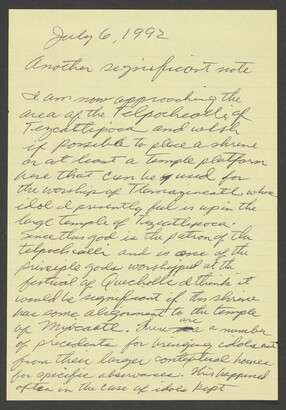 July 6, 1992
Another significant note
I am now approaching the
area of the Telpochcalli of
Tezcatlipoca and wish
if possible to place a shrine
or at least a temple platform
here that can be used for
the worship of Tlamazincatl whose
idol I presently feel is up in the
large temple of Tezcatlipoca.
Since this god is the patron of the
telpochcalli and is one of the
principle gods worshipped at the
festival of Quecholli I think it
would be significant if this shrine
has some alignment to the temple
of Mixcoatl. There are a number
of precedents for bringing idols out
from their larger contextual homes
for specific observances. This happened
often in the case of idols kept